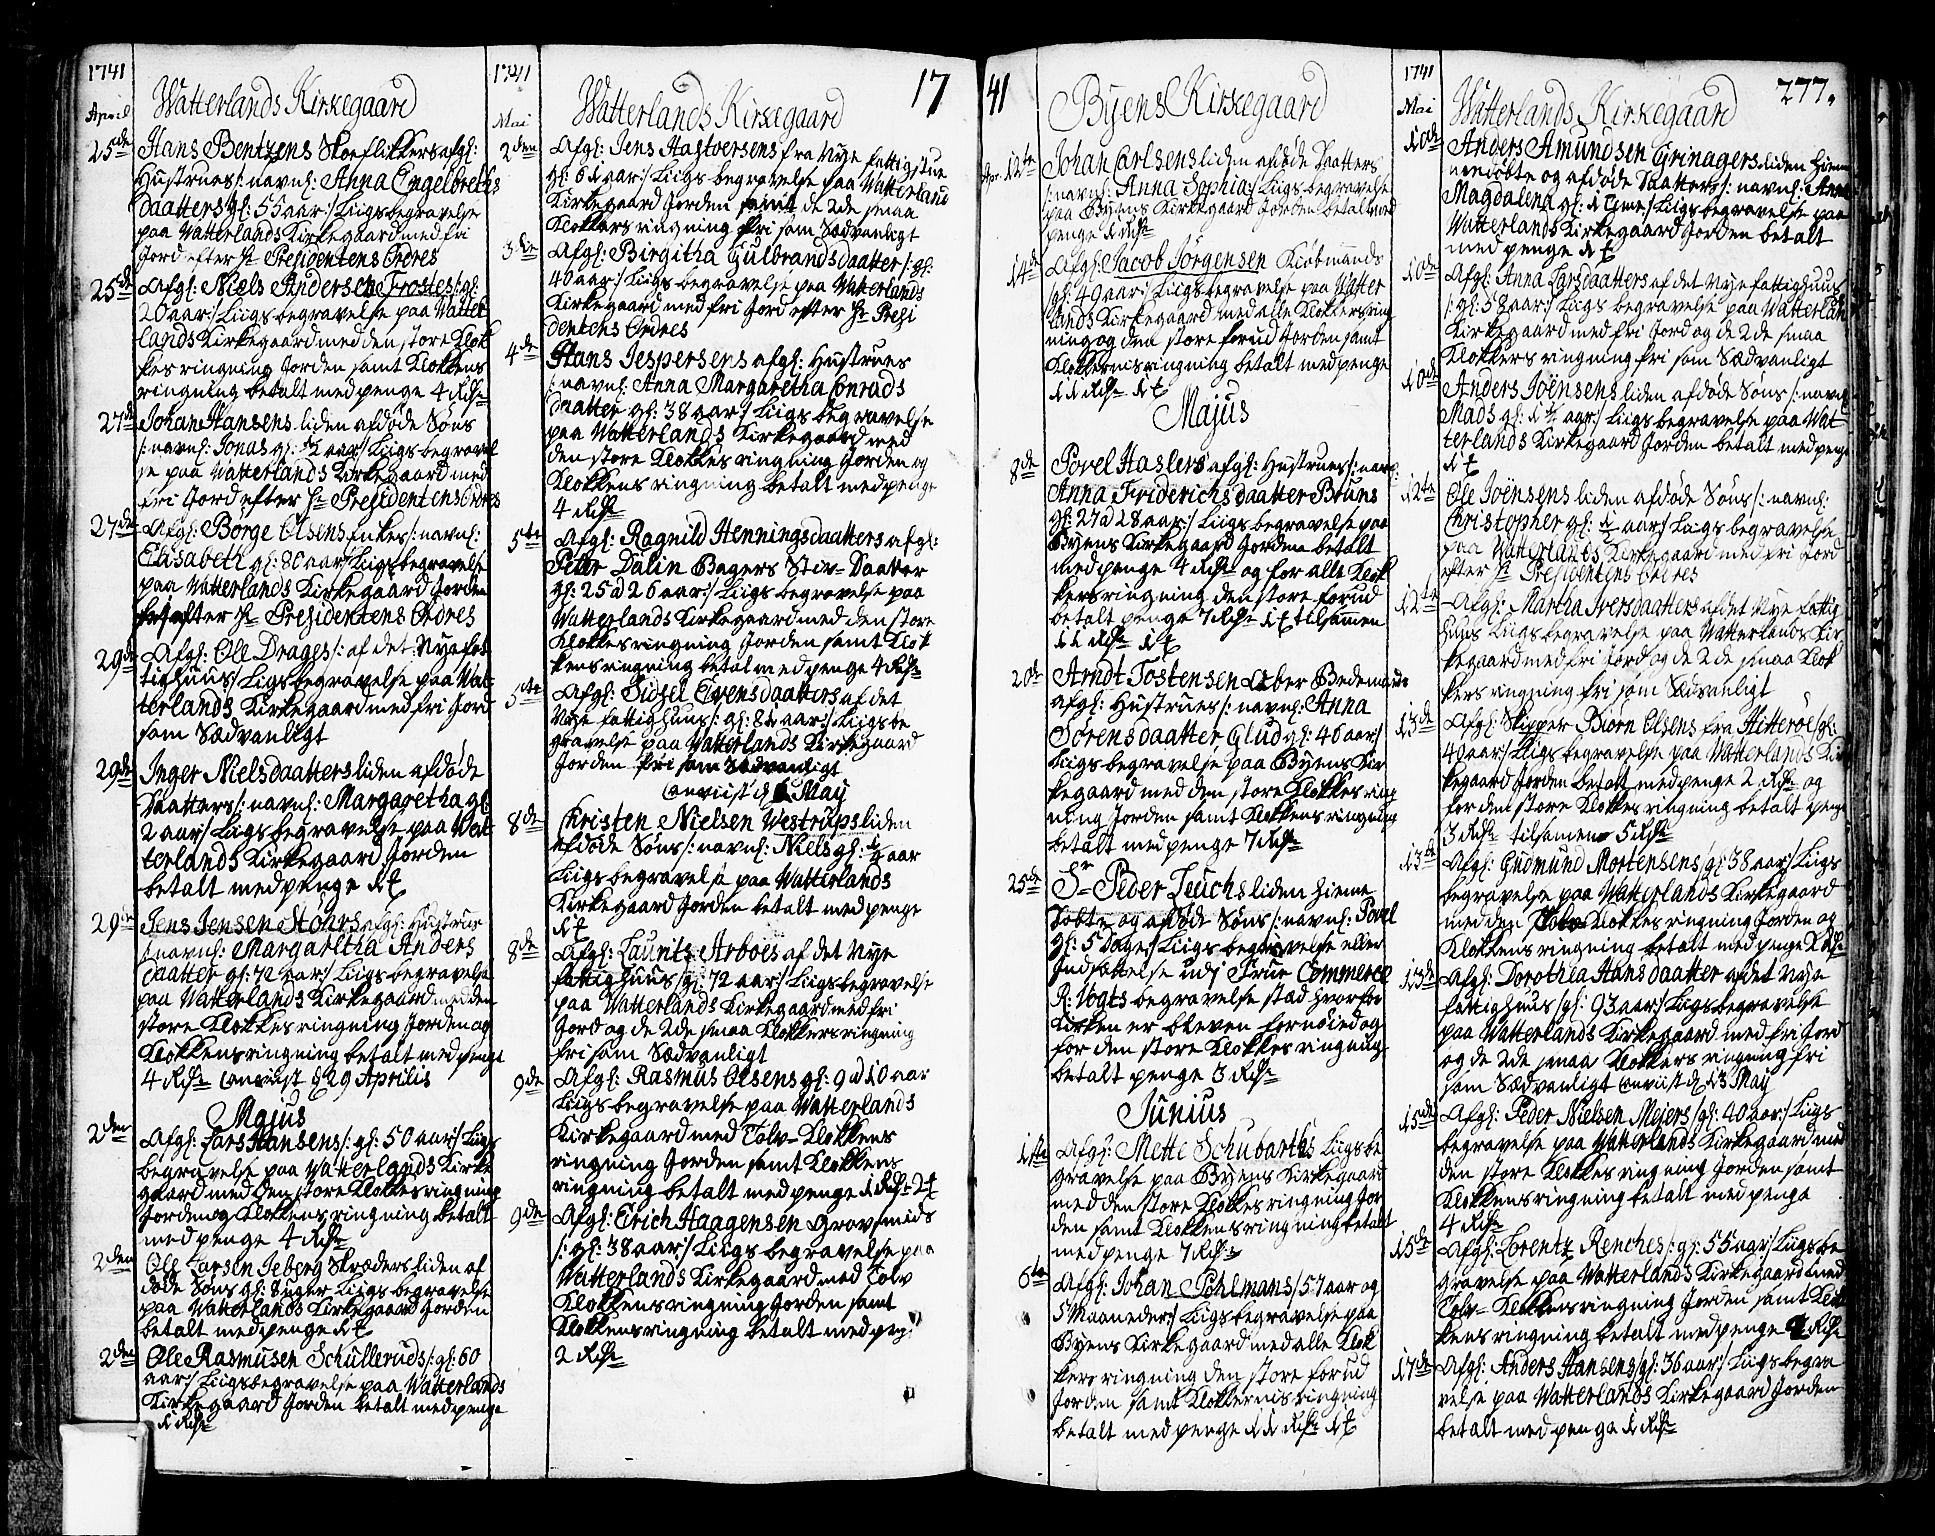 1741
April
Watterlands Kirkegaard
25de Hans Bentzens Skoeflikkers afgl:
Hustrues /: navnl: Anna Engelbreths
daatters gl: 55 aar:/ Liigs begravelse
paa Watterlands Kirkegaard med fri
Jord efter Hr Presidentens Ordres
25de Afgl: Niels Andersen Trostes /: gl:
20 aar:/ Liigs begravelse paa Watter
lands Kirkegaard med den store Klok
kes ringning Jorden samt Klokkens
ringning betalt med penge 4 Rdr
27de Johan Hansens liden afdøde Søns
/: navnl: Jonas gl: 1/2 aar:/ Liigs begravel
se paa Watterlands Kirkegaard med
fri Jord efter Hr Presidentens Ordres
27de Afgl: Børge Olsens Enkes /: navnl:
Elisabeth gl: 80 aar:/ Liigs begravelse
paa Watterlands Kirkegaard Jorden
fri efter Hr Presidentens Ordres
29de Afgl: Ole Drages /: af det Nye fat
tighuus/ Liigs begravelse paa Wat-
terlands Kirkegaard med fri Jord
som Sædvanligt
29de Inger Nielsdaatters liden afdøde
Daatters /: navnl: Margaretha gl:
2 aar:/ Liigs begravelse paa Wat-
terlands Kirkegaard Jorden
betalt med penge 1 ƭ
29de Jens Jensen Støhrs afgl: Hustrue
/: navnl: Margaretha Anders
daatter gl: 72 aar:/ Liigs begravelse
paa Watterlands Kirkegaard med den
store Klokkes ringning Jorden og
Klokkens ringning betalt med penge
4 Rdr Conviist d 29 Aprilis
Majus
2den Afgl: Lars Hansens /: gl: 50 aar:/ Liigs
begravelse paa Watterlands Kirke
gaard med den store Klokkes ringning
Jorden og Klokkens ringning betalt
med penge 4 Rdr
2den Ole Larsen Jeberg Skræders liden af
døde Søns gl: 8 uger Liigs begravelse
paa Watterlands Kirkegaard Jorden
betalt med penge 1 ƭ
2den Ole Rasmusen Schulleruds /: gl: 60
aar:/ Liigs begravelse paa Watterlands
Kirkegaard Jorden betalt med penge
1 Rdr
1741
Mai
Watterlands Kirkegaard
17
2den Afgl: Jens Hastversens fra Nye fattigstue
gl: 61 aar:/ Liigs begravelse paa Watterland
Kirkegaard Jorden samt de 2de smaa
Klokkers ringning fri som Sædvanligt
3die Afgl: Birgitha Gulbrandsdaatter /: gl:
40 aar:/ Liigs begravelse paa Watterlands
Kirkegaard med fri Jord efter Hr Presi
dentens Ordres
4de Hans Jespersens afgl: Hustrues
/: navnl: Anna Margaretha Conrads
daatter gl: 38 aar:/ Liigs begravelse
paa Watterlands Kirkegaard med
den store Klokkes ringning Jorden og
Klokkens ringning betalt med penge
4 Rdr
5te Afgl: Ragnild Henningsdaatters afgl:
Peter Dalin Bagers Stiv-Daatter
gl: 25 a 26 aar:/ Liigs begravelse paa
Watterlands Kirkegaard med den store
Klokkes ringning Jorden samt Klok
kens ringning betal med penge 4 Rdr
5te Afgl: Sidsel Evensdaatters af det
Nye fattighuus /: gl: 81 aar:/ Liigs be
gravelse paa Watterlands Kirkegaard
Jorden fri som Sædvanligt
Conviist d May
8de Christen Nielsen Westrups liden
afdøde Søns /: navnl: Niels gl: 1/4 aar
Liigs begravelse paa Watterlands
Kirkegaard Jorden betalt med penge
1 ƭ
8de Afgl: Laurits Arboes af det Nye
fattighuus /: gl: 72 aar:/ Liigs begravelse
paa Watterlands Kirkegaard med fri
Jord og de 2de smaa Klokkers ringning
fri som Sædvanligt
9de Afgl: Rasmus Olsens gl: 9 a 10 aar
Liigs begravelse paa Watterlands
Kirkegaard med Tolv-Klokkens
ringning Jorden samt Klokkens
ringning betalt med penge 1 Rdr 2 ƭ
9de Afgl: Erich Haagensen Grovsmids
/: gl: 38 aar:/ Liigs begravelse paa
Watterlands Kirkegaard med Tolv
Klokkens ringning Jorden samt
Klokkens ringning betalt med peng
2 Rdr
41
Byens Kirkegaard
Apr. 12te Johan Carlsens liden afdøde Daatters
/: navnl: Anna Sophia:/ Liigs begravelse
paa Byens Kirkegaard Jorden betal med
penge 1 Rdr
14de Afgl: Jacob Jørgensen Kiøbmands
/: gl: 49 aar:/ Liigs begravelse paa Watter
lands Kirkegaard med alle Klokkers ring
ning og den store forud Jorden samt
Klokkernis ringning betalt med penge
11 Rdr 1 ƭ
Majus
8de Povel Haslers afgl: Hustrues /: navnl:
Anna Friderichsdaatter Bruns
gl: 27 a 28 aar:/ Liigs begravelse paa
Byens Kirkegaard Jorden betalt
med penge 4 Rdr og for alle Klok
kers ringning den store forud
betalt penge 7 Rdr 1 ƭ tilsammen
11 Rdr 1 ƭ
20de Arndt Tostensen Løber Bedemands
afgl: Hustrues /: navnl: Anna
Sørensdaatter Glud gl: 40 aar:/
Liigs begravelse paa Byens Kir
kegaard med den store Klokkes ring
ning Jorden samt Klokkens ringning
betalt med penge 7 Rdr
25de Sr Peder Leuchs liden hieme
døbte og afdøde Søns /: navnl: Povel
gl: 5 dage:/ Liigs begravelse eller
Indsættelse udj Frue Commerce
R: Vogts begravelse stæd hvorfor
Kirken er bleven fornøied og
for den store Klokkes ringning
betalt penge 3 Rdr
Junius
1ste Afgl: Mette Schubarths Liigs be
gravelse paa Byens Kirkegaard
med den store Klokkes ringning Jor
den samt Klokkens ringning betalt
med penge 7 Rdr
6te Afgl: Johan Pohlmans /: 57 aar og
5 Maaneder:/ Liigs begravelse paa
Byens Kirkegaard med alle Klok
kers ringning den store forud
Jorden samt Klokkernis ringning
betalt med penge 11 Rdr 1 ƭ
1741
Mai
Watterlands Kirkegaard
277.
10de Anders Amundsen Grinagers liden hieme
døbte og afdøde Daatters /: navnl: Anna
Magdalena gl: 1 time:/ Liigs begravelse paa
Watterlands Kirkegaard Jorden betalt
med penge 1 ƭ
10de Afgl: Anna Larsdaatters af det Nye fattighuus
/: gl: 58 aar:/ Liigs begravelse paa Watterlan
Kirkegaard med fri Jord og de 2de smaa
Klokkers ringning fri som Sædvanligt
10de Anders Joënsens liden afdøde Søns /: navnl
Mads gl: 1 1/2 aar:/ Liigs begravelse paa Wat
terlands Kirkegaard Jorden betalt med penge
1 ƭ
12te Ole Joënsens liden afdøde Søns /: navnl:
Christopher gl: aar:/ Liigs begravelse
paa Watterlands Kirkegaard med fri Jord
efter Hr Presidentens Ordres
12te Afgl: Martha Iversdaatters af det Nye fattig
huus Liigs begravelse paa Watterlands Kir
kegaard med fri Jord og de 2de smaa Klok
kers ringning fri som Sædvanligt
13de Afgl: Skipper Biørn Olsens fra Hitterøe /: gl:
40 aar:/ Liigs begravelse paa Watterlands Kir
kegaard Jorden betalt med penge 2 Rdr og
for den store Klokkes ringning betalt penge
3 Rdr tilsamen 5 Rdr
13de Afgl: Gudmund Mortensens /: gl: 38 aar:/ Liigs
begravelse paa Watterlands Kirkegaard
med den Tolv Klokkes ringning Jorden og
Klokkens ringning betalt med penge 2 Rdr
13de Afgl: Dorothea Hansdaatter af det Nye
fattighuus /: gl: 93 aar:/ Liigs begravelse
paa Watterlands Kirkegaard med fri Jord
og de 2de smaa Klokkers ringning fri
som Sædvanligt Conviist d 13 May
15de Afgl: Peder Nielsen Mejers /: gl: 40 aar:/ Liigs
begravelse paa Watterlands Kirkegaard med
den store Klokkes ringning Jorden samt
Klokkens ringning betalt med penge
4 Rdr
15de Afgl: Lorentz Renches /: gl: 55 aar:/ Liigs be
gravelse paa Watterlands Kirkegaard med
Tolv-Klokkens ringning Jorden samt Klok
kens ringning betalt med penge Rdr
17de Afgl: Anders Hansens /: gl: 36 aar:/ Liigs begra
velse paa Watterlands Kirkegaard Jorden
betalt med penge 1 Rdr